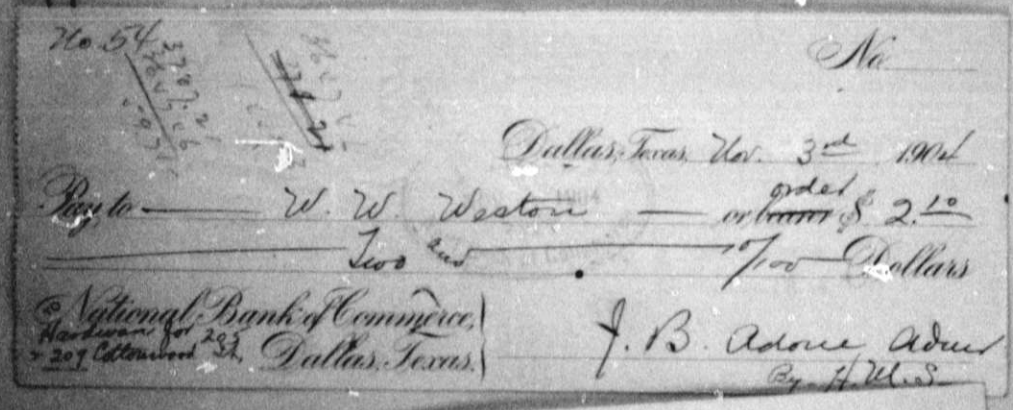 No 54
No
Dallas, Texas, Nov. 3rd 1904
order
Pay to W. W. Weston or bearer $ 2.10
Two and 10/100 Dollars
To National Bank of Commerce,
Hardware for 205
& 209 Cottonwood St.
Dallas, Texas.
J. B. Adoue Admr
By H. M. S.